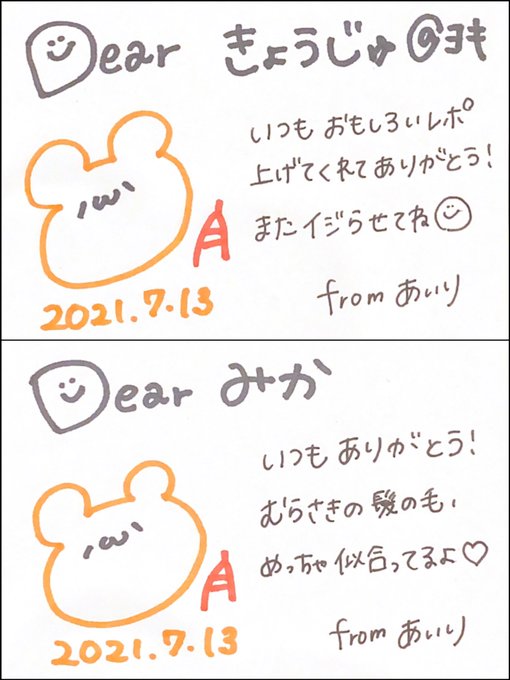 Dear きょうじゅ@ヨキ
いつも おもしろいレポ
上げてくれてありがとう!
またイジらせてね
2021.7.13
from あいり
Dear みか
いつも ありがとう!
むらさきの 髪の毛、
めっちゃ 似合ってるよ♡
2021.7.13
from あいり